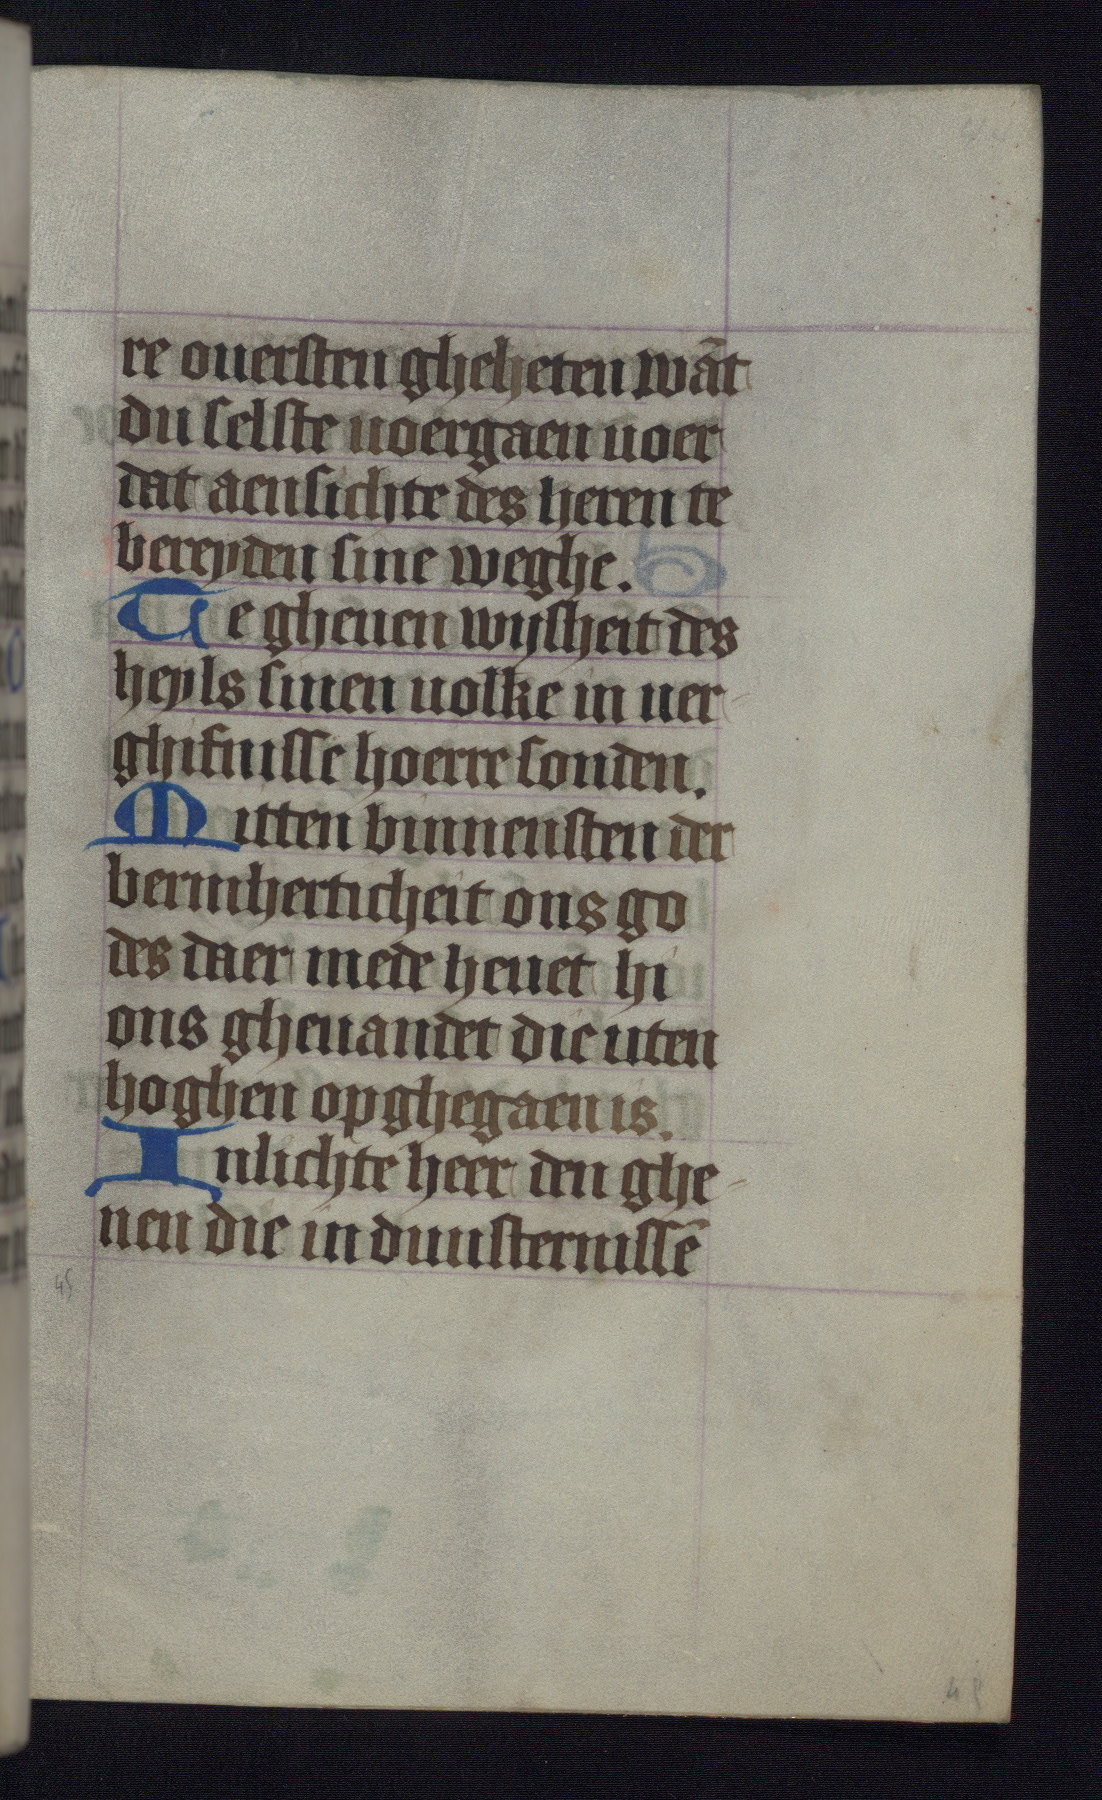 re ouersten gheheten wāt
du selste uoergaen uoer
dat aensichte des heren te
bereyden sine weghe.
Te gheuen wijsheit des
heyls sinen uolke in uer-
ghifnisse hoerre sonden.
Mitten binnensten der
bermherticheit ons go
des daer mede heuet hi
ons gheuandet die uten
hoghen opghegaen is.
Inlichte heer den ghe-
nen die in duusternissē
45